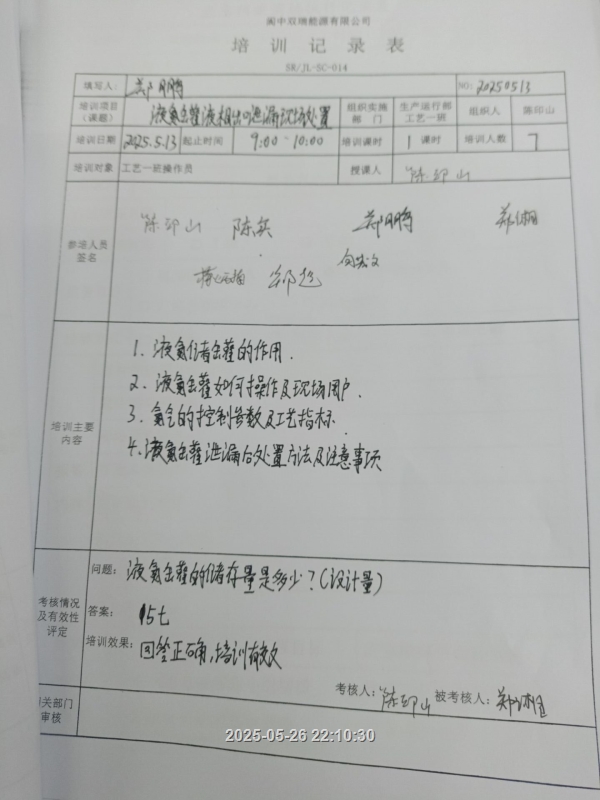 阆中双瑞能源有限公司
培训记录表
SR/JL-SC-014
填写人: 郑明鹏 NO: 20250513
培训项目(课题) 液氨罐液相出口泄漏现场处置 组织实施部门 生产运行部工艺一班 组织人 陈印山
培训日期 2025.5.13 起止时间 9:00-10:00 培训课时 1 课时 培训人数 7
培训对象 工艺一班操作员 授课人 陈印山
参培人员签名
陈印山 陈兵 郑明鹏
培训主要内容
1. 液氨储罐的作用.
2. 液氨罐如何操作及现场用户.
3. 氨气的控制参数及工艺指标.
4. 液氨罐泄漏后处置方法及注意事项
考核情况及有效性评定
问题: 液氨罐的储存量是多少?(设计量)
答案: 15七
培训效果: 回答正确,培训有效
考核人: 陈印山 被考核人:
关部门审核
2025-05-26 22:10:30